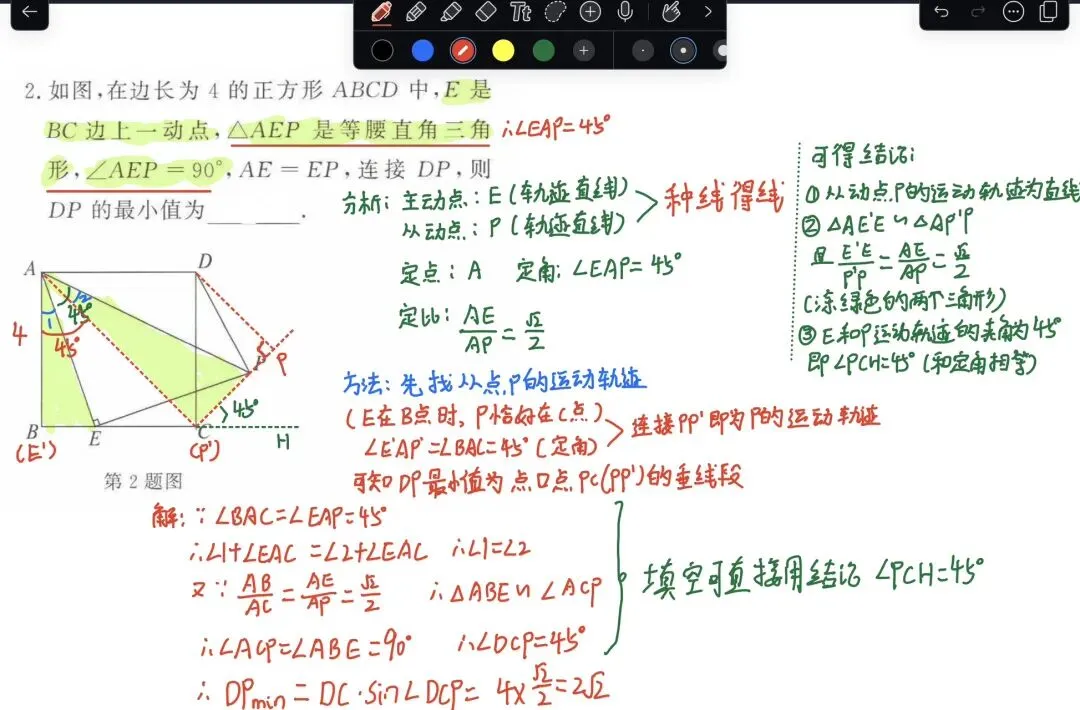 Tt
2. 如图,在边长为 4 的正方形 ABCD 中,E 是
BC 边上一动点,△AEP 是等腰直角三角
∴∠EAP=45°
形,∠AEP=90°,AE=EP,连接 DP,则
DP 的最小值为________.
分析: 主动点: E (轨迹直线)
从动点: P (轨迹直线)
种线得线
定点: A 定角: ∠EAP=45°
定比: AE/AP = √2/2
可得结论:
① 从动点P的运动轨迹为直线
② △AE'E ∽ △AP'P
且 E'E/P'P = AE/AP = √2/2
(涂绿色的两个三角形)
③ E和P运动轨迹的夹角为45°
即 ∠PCH=45° (和定角相等)
A
D
4
1
2
45°
45°
P
P
45°
B
E
C
H
(E')
(P')
第 2 题图
方法: 先找从点P的运动轨迹
(E在B点时, P恰好在C点)
∠E'AP'=∠BAC=45° (定角)
连接PP'即为P的运动轨迹
可知DP最小值为点D点PC(PP')的垂线段
解: ∵ ∠BAC=∠EAP=45°
∴∠1+∠EAC=∠2+∠EAC ∴∠1=∠2
又∵ AB/AC = AE/AP = √2/2 ∴△ABE∽∠ACP
∴∠ACP=∠ABE=90° ∴∠DCP=45°
∴ DPmin = DC·sin∠DCP= 4×√2/2=2√2
填空可直接用结论 ∠PCH=45°